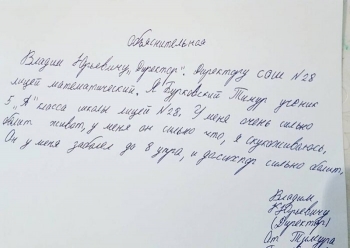 Объяснительная
Владим Юрьевичу, Директор". Директору СОШ N28
лицей математический. Я Бурковский Тимур ученик
5 „Я" класса школы лицей N28. У меня очень сильно
болит живот, у меня он сильно что, я скукоживалось,
Он у меня заболел до 8 утра, и до сих пор сильно болит,
Владим
Юрьевичу
(Директор)
От Тимура